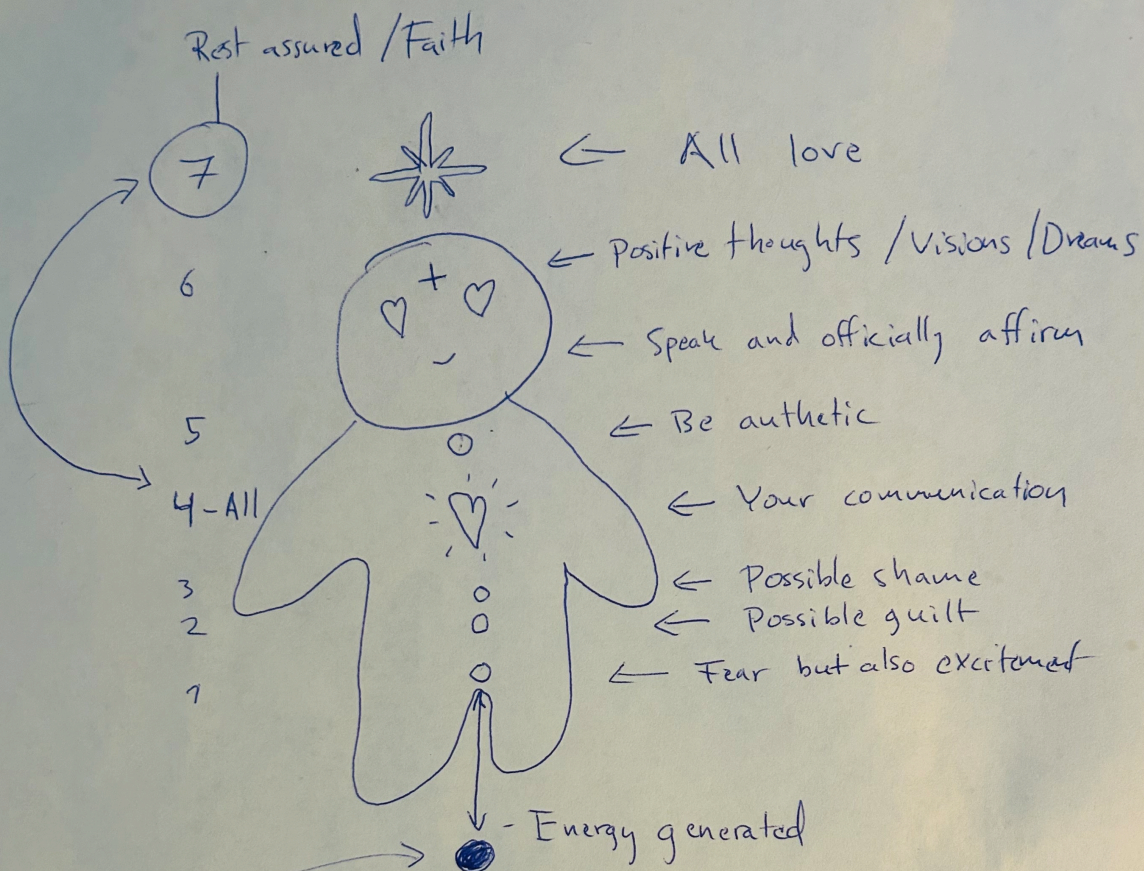 Rest assured /Faith
7
← All love
← Positive thoughts /Visions /Dreams
6
← Speak and officially affirm
← Be authetic
5
← Your communication
4-All
← Possible shame
3
← Possible guilt
2
← Fear but also excitement
1
- Energy generated